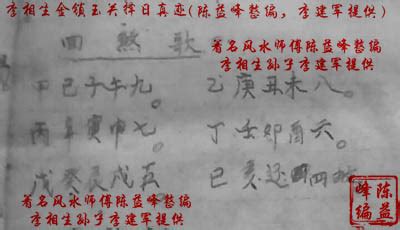 李相生金锁玉关择日真迹(陈益峰整编，李建军提供)
四煞歌
著名风水师傅陈益峰整编
李相生孙子李建军提供
甲己子午九。 乙庚丑未八。
丙辛寅申七。 丁壬卯酉六。
戊癸辰戌五 巳亥还四
著名风水师傅陈益峰整编
李相生孙子李建军提供
陈益峰编